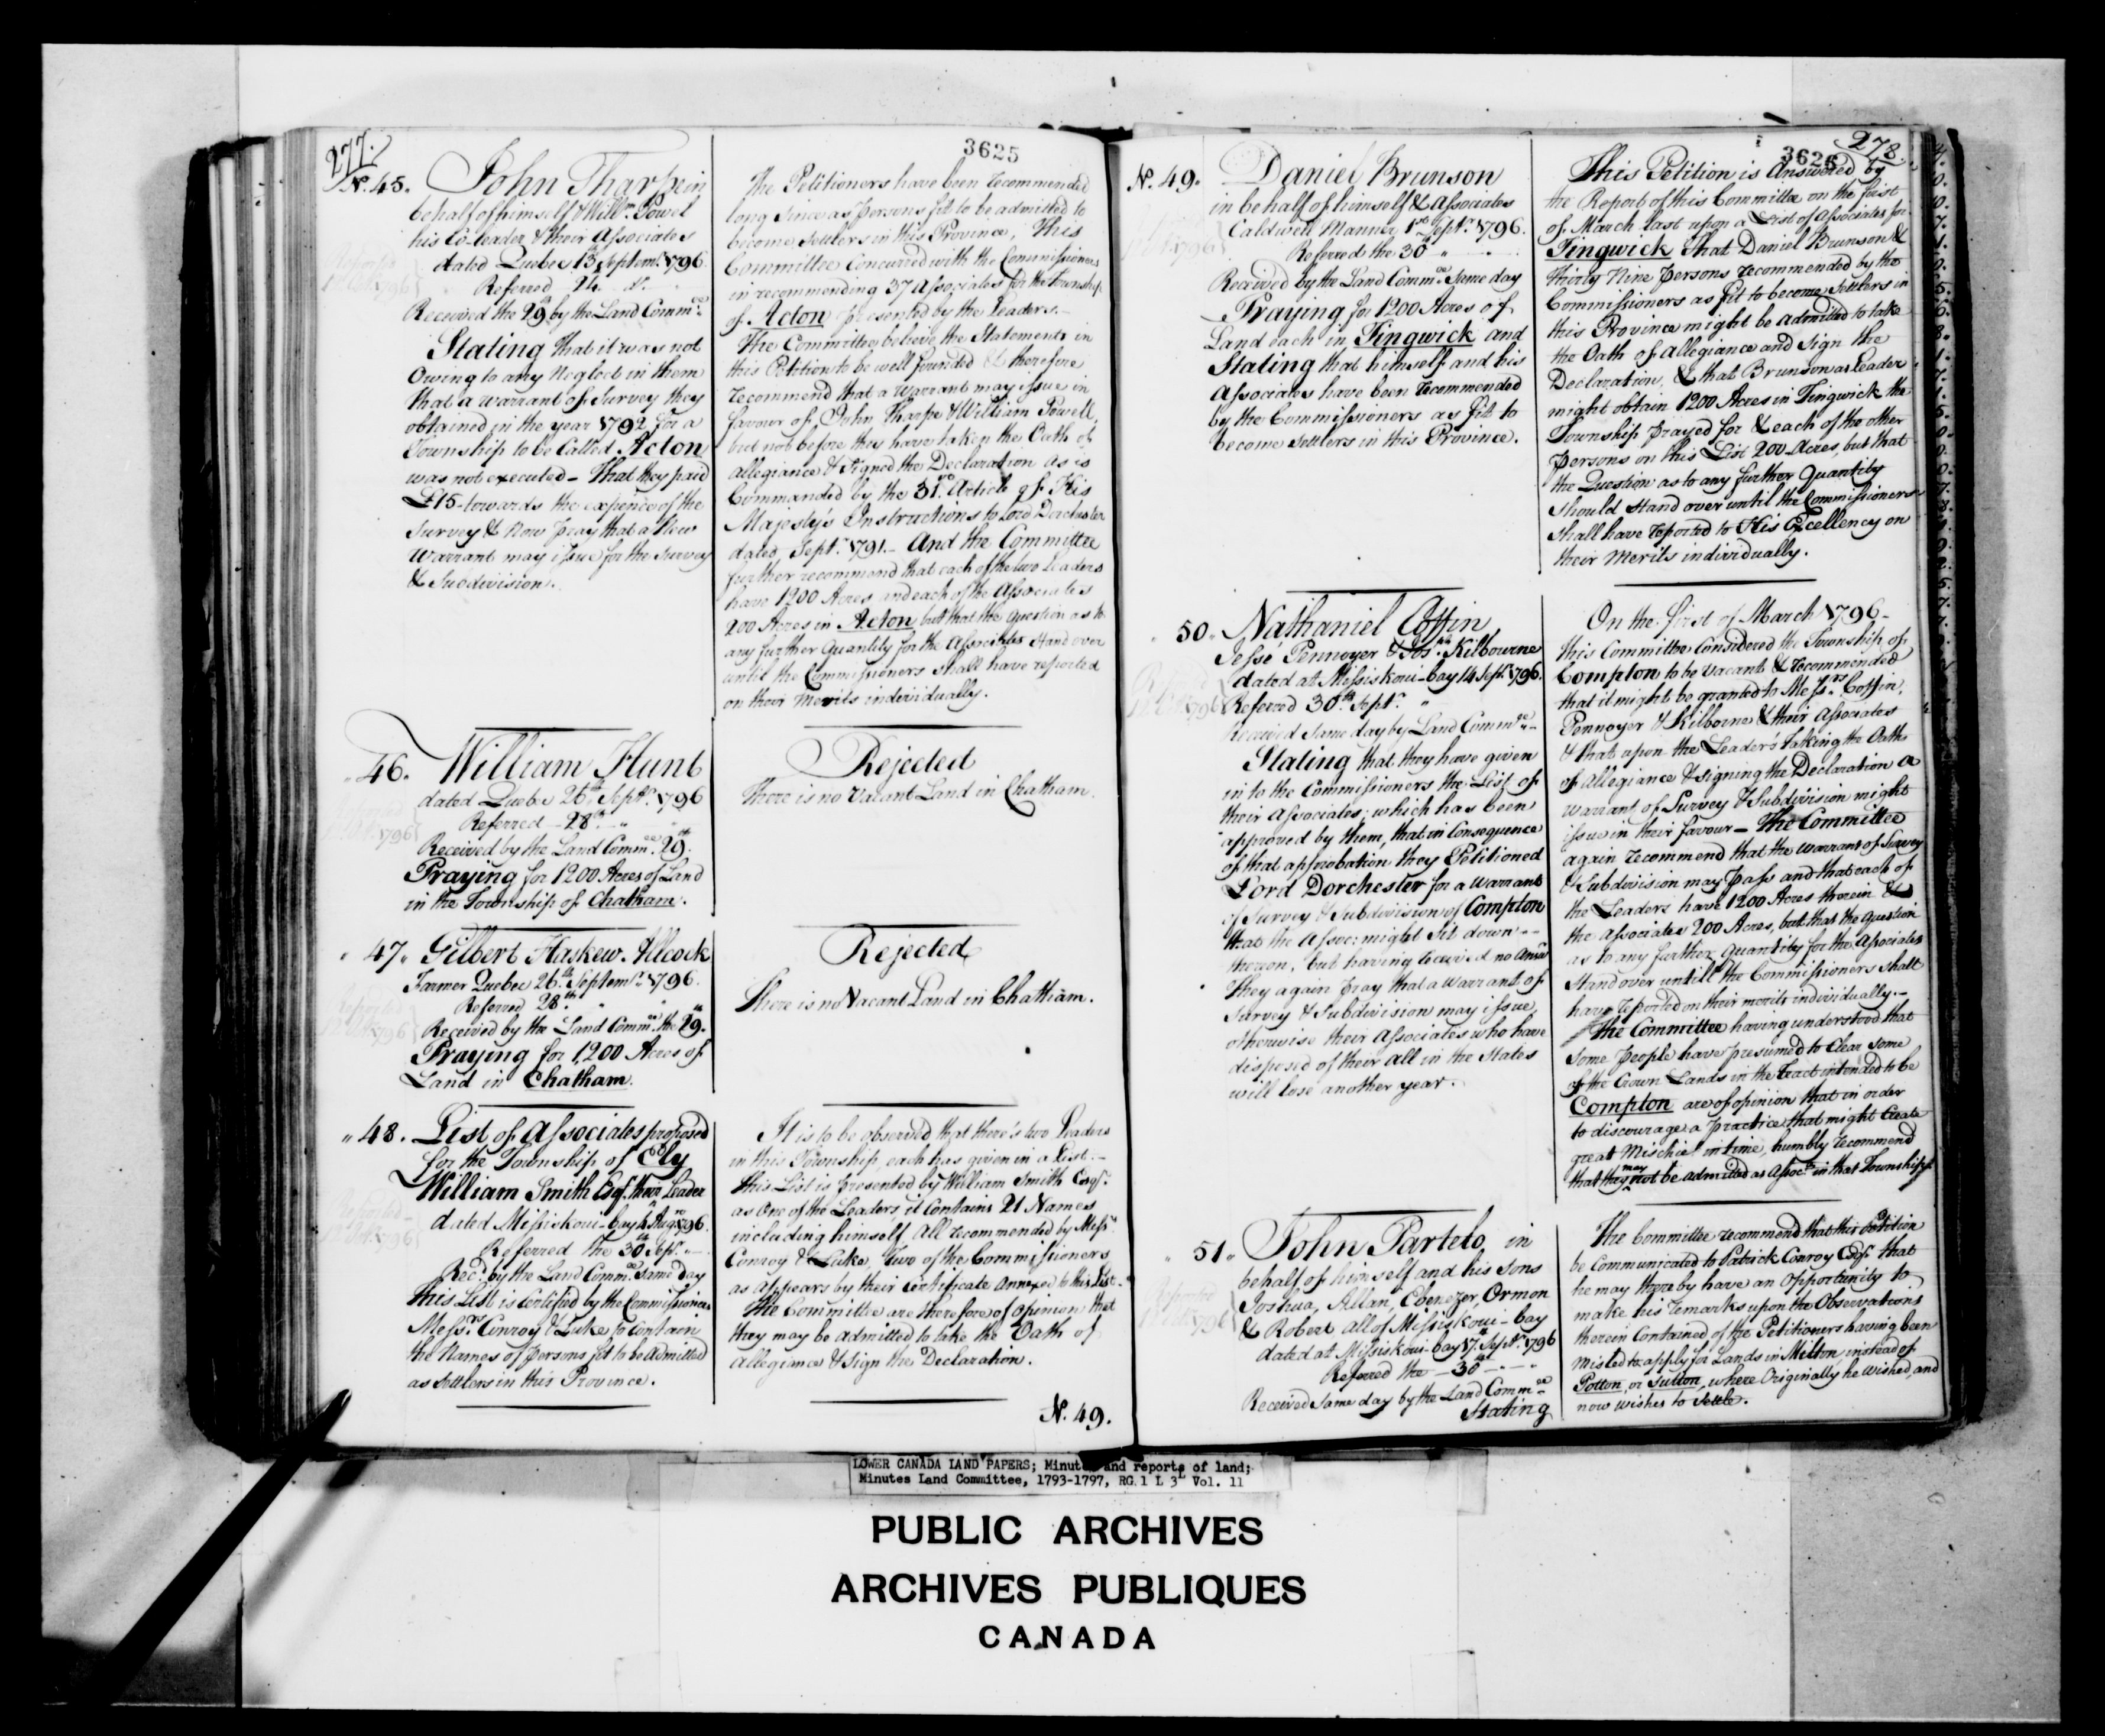 277.
3625
N. 45. John Tharpe in
behalf of himself & Willm. Powel
his Co-leader & their Associates
dated Quebec 13 Septemr. 1796.
Referred 24 do.
Received the 29th by the Land Commee.
Stating that it was not
Owing to any Neglect in them
that a warrant of Survey they
obtained in the year 1792 for a
Township to be Called Acton
was not executed - That they paid
£15- towards the expence of the
Survey & Now pray that a New
Warrant may issue for the Survey
& Subdivision.
The Petitioners have been recommended
long since as persons fit to be admitted to
become settlers in this Province, This
Committee Concurred with the Commissioners
in recommending 37 Associates for the Township
of Acton presented by the Leaders.-
The Committee believe the Statements in
this Petition to be well founded & therefore
recommend that a Warrant may issue in
favour of John Tharpe & William Powell,
but not before they have taken the Oath of
Allegiance & Signed the Declaration as is
Commanded by the 31st. Article of His
Majesty's Instructions to Lord Dorchester
dated Septr. 1791.- And the Committee
further recommend that each of the two Leaders
have 1200 Acres and each of the Associates
200 Acres in Acton, but that the Question as to
any further Quantity for the Associates Stand over
until the Commissioners shall have reported
on their Merits individually.
" 46. William Hunt
dated Quebec 26th Septr. 1796
Referred - 28th "
Received by the Land Commee. 29th.
Praying for 1200 Acres of Land
in the Township of Chatham.
Rejected
There is no Vacant Land in Chatham.
" 47 " Gilbert Haskew Allcock
Farmer Quebec 26th. Septemr. 1796.
Referred 28th. "
Received by the Land Commee. the 29th.
Praying for 1200 Acres of
Land in Chatham.
Rejected
There is no Vacant Land in Chatham.
" 48. List of Associates proposed
for the Township of Ely
William Smith Esqr. their Leader
dated Missiskoui-bay Augt. 1796.
Referred the 30th Septr. "
Recd. by the Land Commee. Same day
This List is Certified by the Commissioners
Messrs. Conroy & Luke to Contain
the Names of persons fit to be admitted
as settlers in this Province.
It is to be observed that there's two Leaders
in this Township, each has given in a List.-
This List is presented by William Smith Esqr.
as One of the Leaders, it Contains 21 Names
including himself, All recommended by Messrs.
Conroy & Luke, Two of the Commissioners
as Appears by their Certificate Annexed to this List.-
The Committee are therefore of Opinion that
they may be admitted to take the Oath of
Allegiance & Sign the Declaration.
N. 49.
278.
3626
N. 49. Daniel Brunson
in behalf of himself & Associates
Caldwell Manner, 1st Septr. 1796.
Referred the 30th "
Received by the Land Commee. Same day
Praying for 1200 Acres of
Land each in Tingwick and
Stating that himself and his
Associates have been recommended
by the Commissioners as fit to
become settlers in this Province.
This Petition is Answered by
the Report of this Committee on the first
of March last upon a List of Associates for
Tingwick that Daniel Brunson &
thirty Nine persons recommended by the
Commissioners as fit to become settlers in
this Province might be admitted to take
the Oath of Allegiance and Sign the
Declaration, & that Brunson as Leader
might obtain 1200 Acres in Tingwick the
Township prayed for & each of the other
persons on this List 200 Acres, but that
the Question as to any further Quantity
Should Stand over until the Commissioners
shall have reported to His Excellency on
their Merits individually.
50. Nathaniel Coffin,
Jesse Pennoyer & Jos. Kilbourne
dated at Missiskoui-bay 14 Septr. 1796.
Referred 30th. Septr. "
Received same day by Land Commee.-
Stating that they have given
in to the Commissioners the List of
their Associates; which has been
approved by them, that in Consequence
of that approbation they Petitioned
Lord Dorchester for a Warrant
of Survey & Subdivision of Compton
that the Assoc: might sit down --
thereon, but having received no Answr.
They again pray that a Warrant of
Survey & Subdivision may issue,
otherwise their Associates who have
disposed of their all in the States
will lose another year.
On the first of March 1796 -
this Committee Considered the Township of
Compton to be vacant & recommended
that it might be granted to Messrs. Coffin,
Pennoyer & Kilborne & their Associates
& that upon the Leader's taking the Oath
of Allegiance & signing the Declaration a
Warrant of Survey & Subdivision might
issue in their favour - The Committee
again recommend that the warrant of Survey
& Subdivision may Pass and that each of
the Leaders have 1200 Acres therein &
the Associates 200 Acres, but that the Question
as to any further Quantity for the Associates
Stand over untill the Commissioners shall
have reported on their merits individually.-
The Committee having understood that
some People have presumed to Clear some
of the Crown Lands in the Tract intended to be
Compton are of opinion that in order
to discourage a practice that might Create
great Mischief in time, humbly recommend
that they may not be admitted as Assocs. in that Township.
51 " John Partelo in
behalf of himself and his sons
Joshua, Allan, Ebenezer, Ormon
& Robert all of Missiskoui-bay
dated at Missiskoui-bay 17th. Septr. 1796
Referred the - 30th - "
Received same day by the Land Commee.
Stating
The Committee recommend that this Petition
be Communicated to Patrick Conroy Esqr. that
he may thereby have an Opportunity to
make his remarks upon the Observations
therein Contained of the Petitioners having been
misled to apply for Lands in Milton, instead of
Potton, or Sutton, where Originally he wished, and
now wishes to settle.
LOWER CANADA LAND PAPERS; Minutes and reports of land;
Minutes Land Committee, 1793-1797, RG 1 L 3L Vol. 11
PUBLIC ARCHIVES
ARCHIVES PUBLIQUES
CANADA